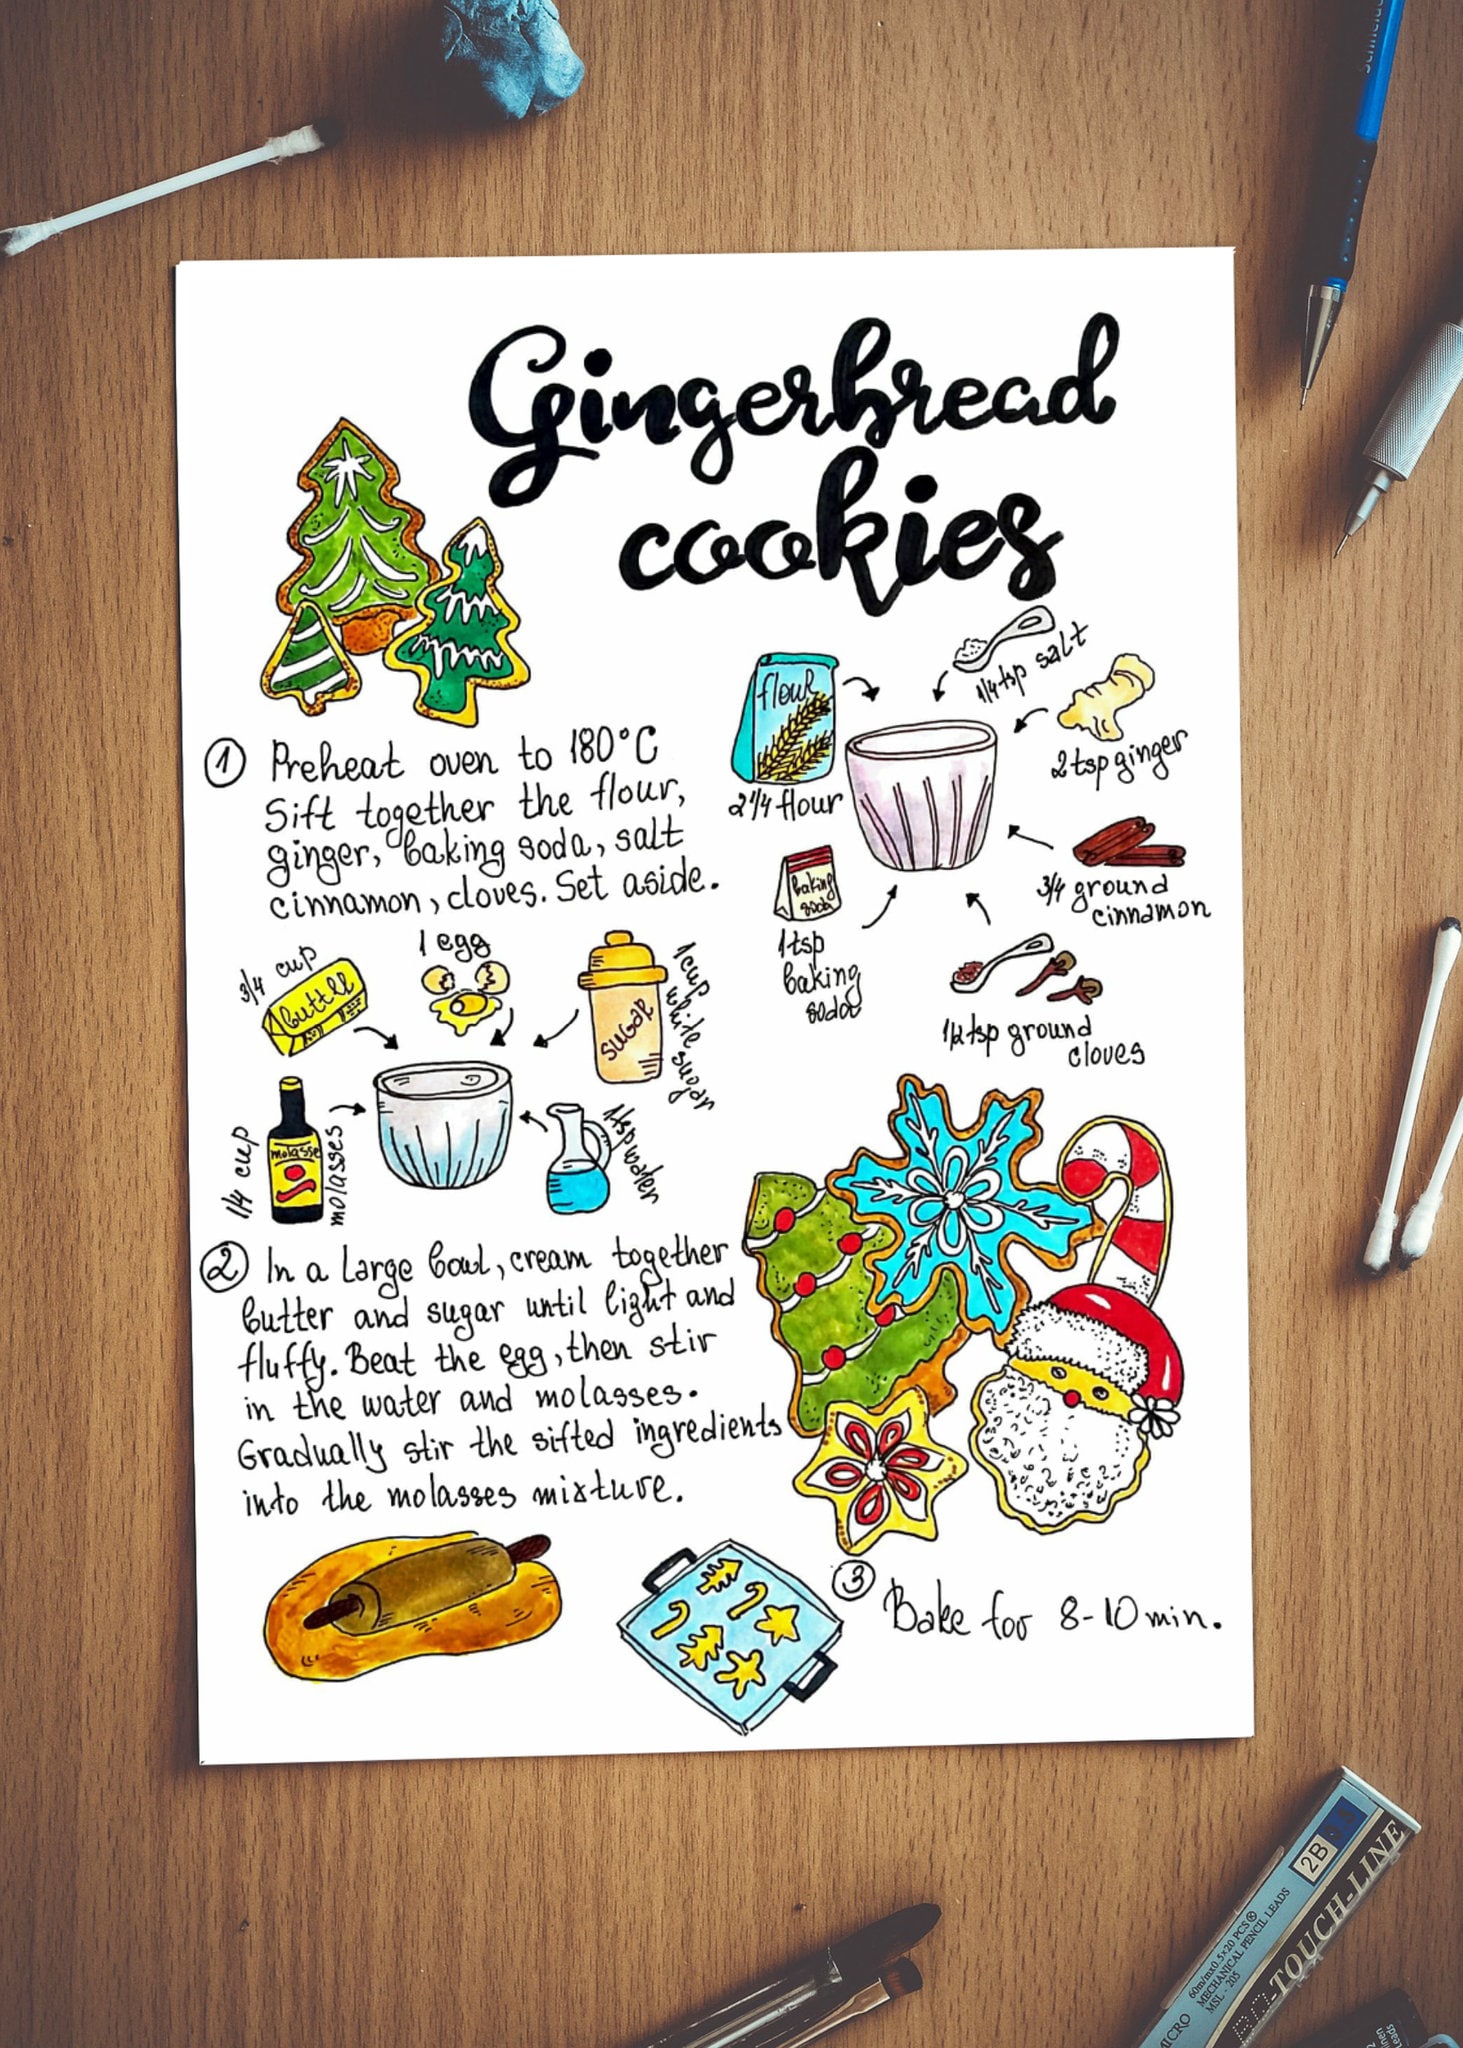 schneider
Gingerbread
cookies
flour
2 1/4 flour
1/4 tsp salt
2 tsp ginger
3/4 ground
cinnamon
1/2 tsp ground
cloves
baking
soda
1 tsp
baking
soda
1 Preheat oven to 180°C
Sift together the flour,
ginger, baking soda, salt
cinnamon, cloves. Set aside.
3/4 cup
butter
1 egg
sugar
1 cup white sugar
1/4 cup
molasse
molasses
1 tsp water
2 In a large bowl, cream together
butter and sugar until light and
fluffy. Beat the egg, then stir
in the water and molasses.
Gradually stir the sifted ingredients
into the molasses mixture.
3 Bake for 8-10 min.
2B
TOUCH-LINE
60m/mx0.5x20 PCS®
MECHANICAL PENCIL LEADS
MSL - 205
MICRO